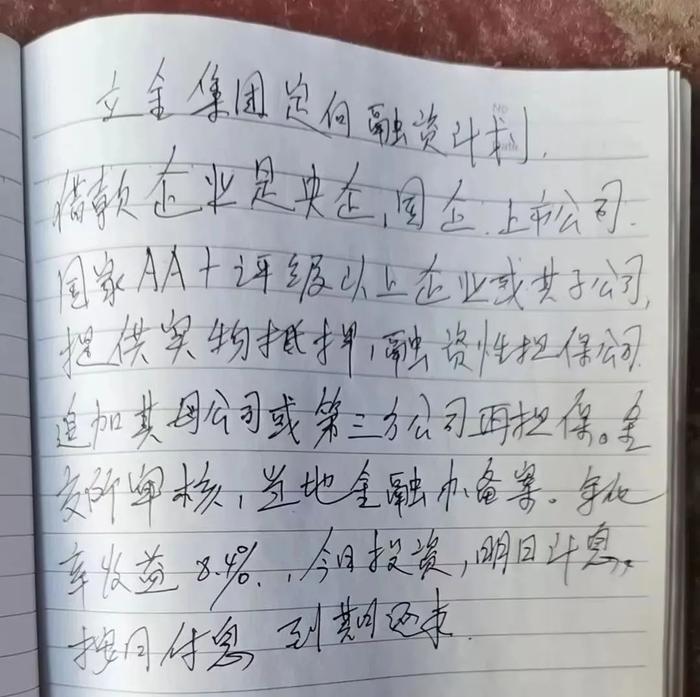 立金集团定向融资计划.
借款企业是央企,国企.上市公司.
国家AA+评级以上企业或其子公司,
提供实物抵押,融资性担保公司.
追加其母公司或第三方公司再担保。金
交所审核,当地金融办备案。年化
率收益8.4%.,今日投资,明日计息。
按月付息 到期还本.